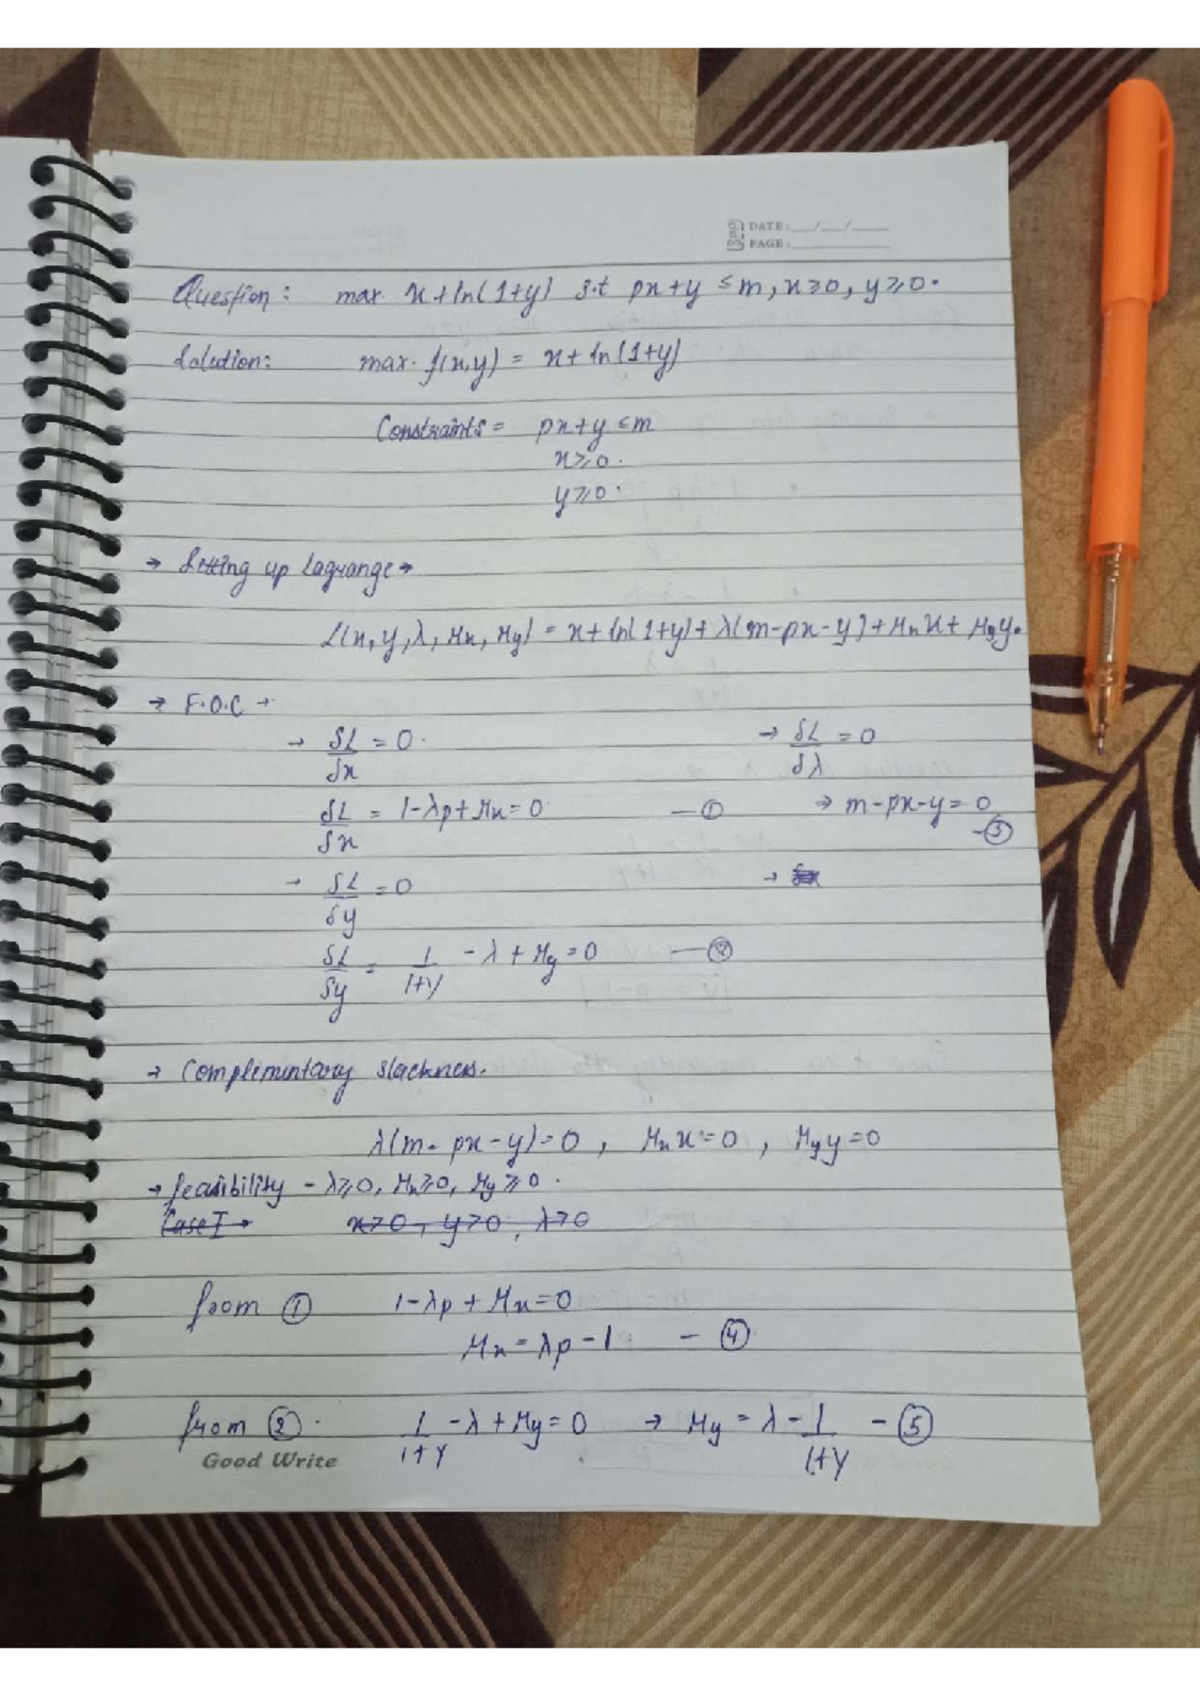 DATE: __/__/____
PAGE:
Question: max. x + ln(1+y) s.t px+y ≤ m, x ≥ 0, y ≥ 0.
Solution: max. f(x,y) = x + ln(1+y)
Constraints = px+y ≤ m
x ≥ 0.
y ≥ 0.
→ Setting up Lagrange →
L(x, y, λ, μx, μy) = x + ln(1+y) + λ(m-px-y) + μx x + μy y.
→ F.O.C →
→ δL/δx = 0. → δL/δλ = 0
δL/δx = 1-λp+μx = 0 — ① → m-px-y = 0 - ③
→ δL/δy = 0 →
δL/δy = 1/(1+y) - λ + μy = 0 — ②
→ Complementary Slackness.
λ(m-px-y) = 0 , μx x = 0 , μy y = 0
→ feasibility - λ ≥ 0, μx ≥ 0, μy ≥ 0.
Case I → x > 0, y > 0, λ > 0
from ① 1-λp + μx = 0
μx = λp - 1 — ④
from ② 1/(1+y) - λ + μy = 0 → μy = λ - 1/(1+y) - ⑤
Good Write